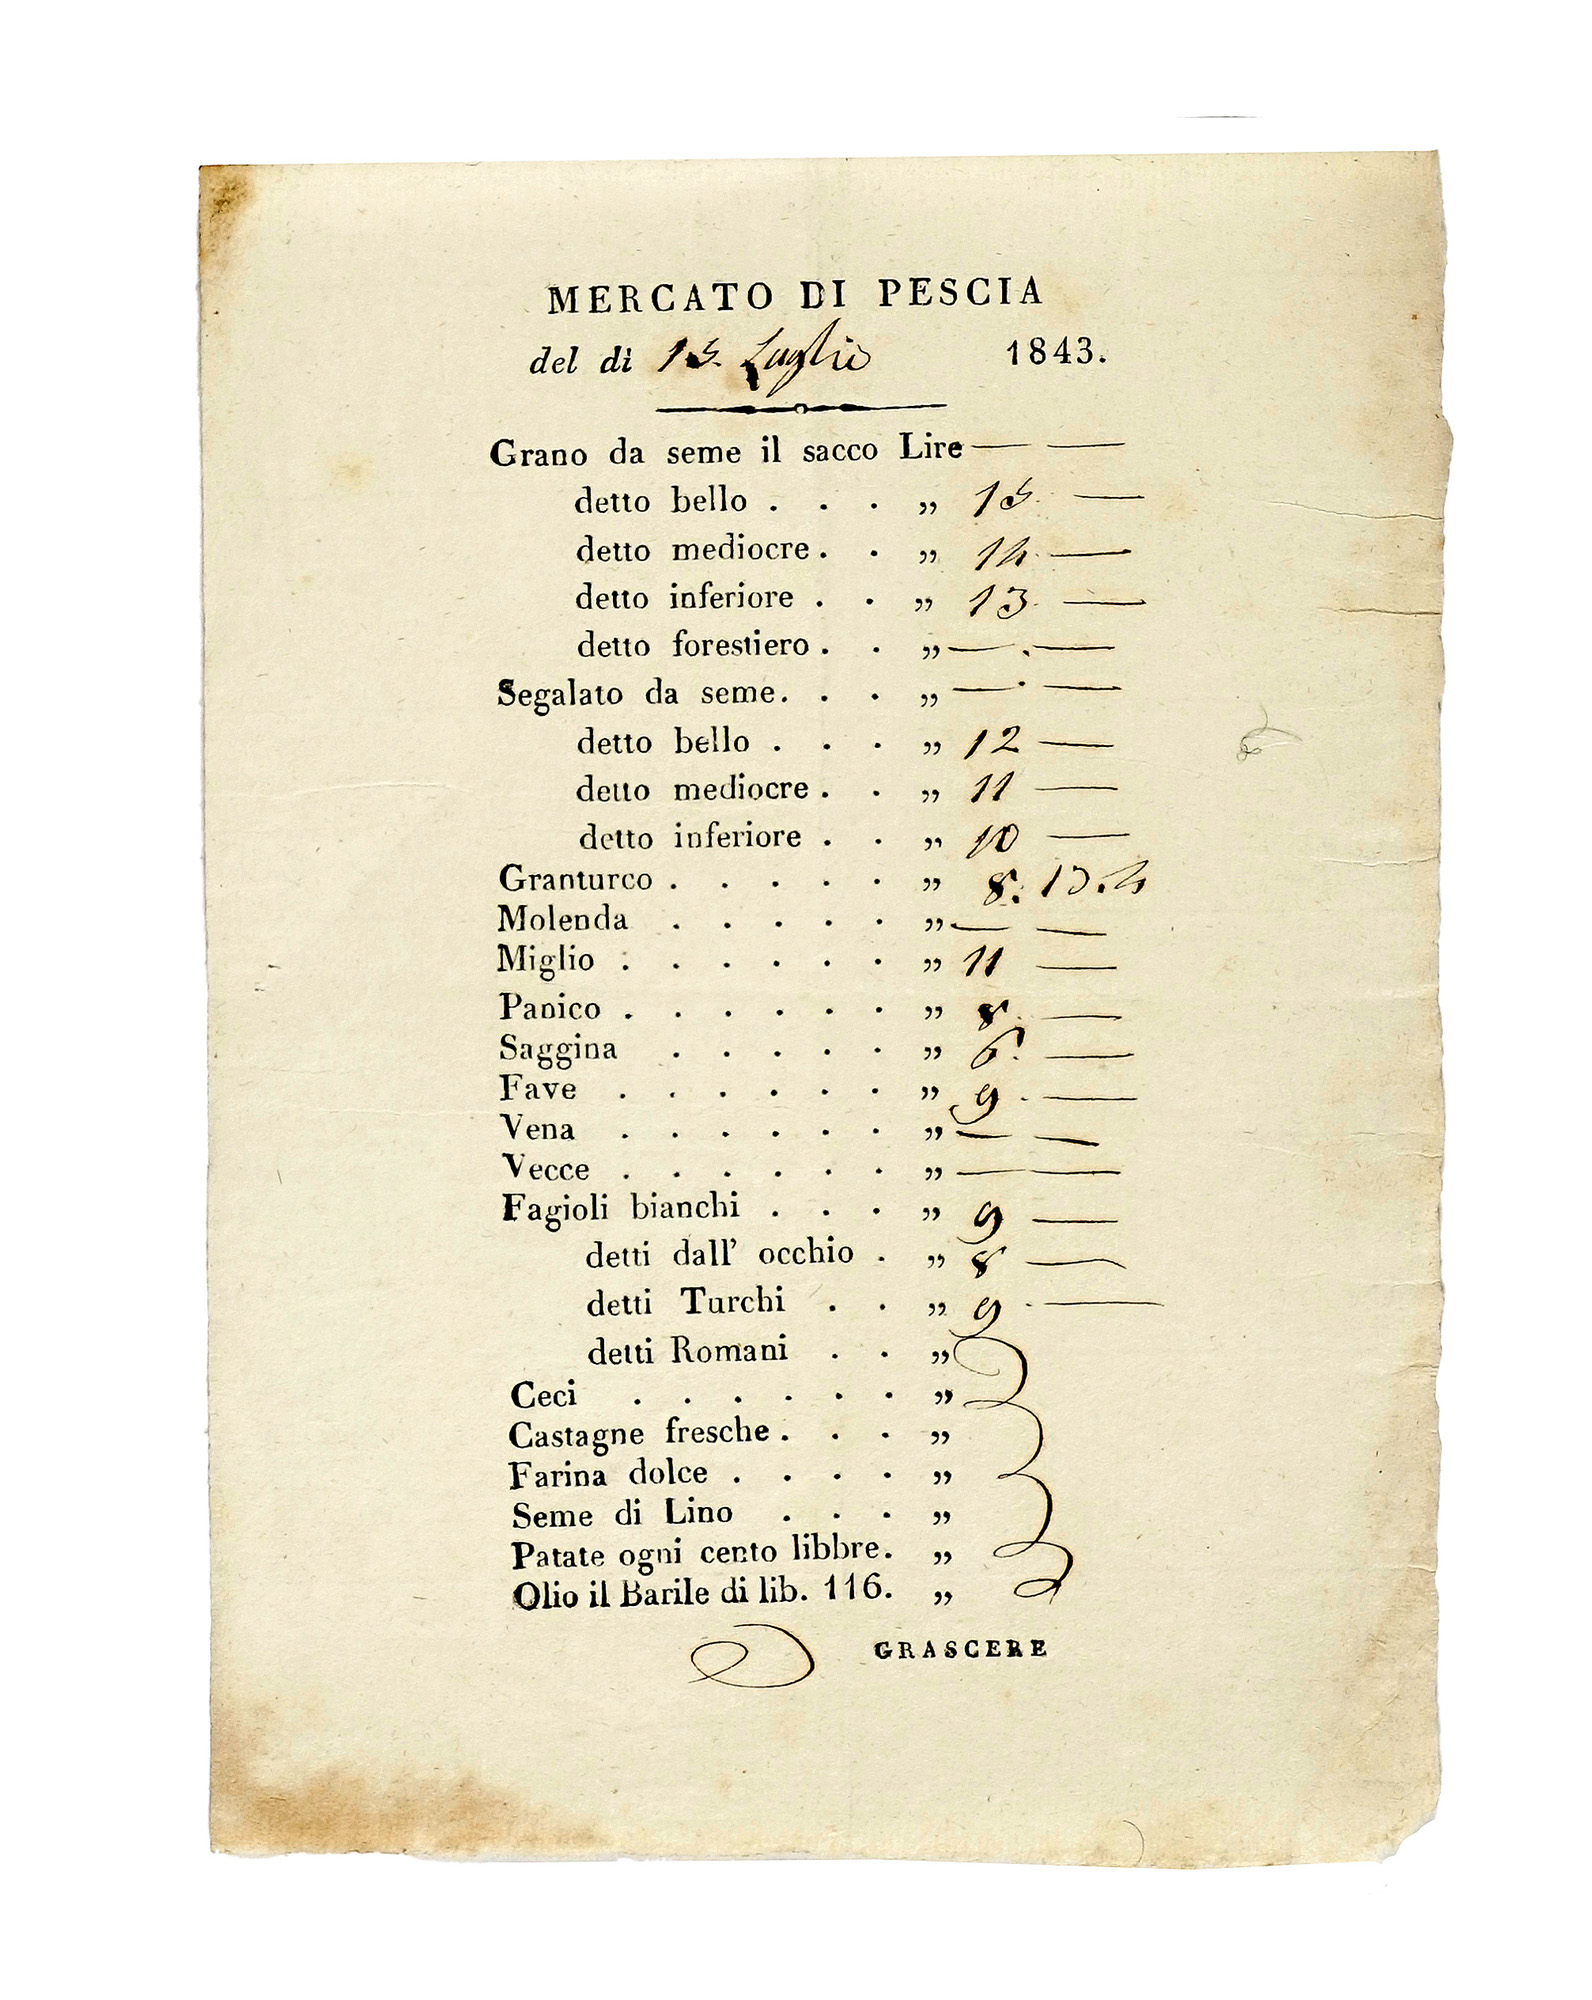 MERCATO DI PESCIA
del dì 15. Luglio 1843.
Grano da seme il sacco Lire — —
detto bello . . . „ 15. —
detto mediocre . . „ 14. —
detto inferiore . . „ 13. —
detto forestiero . . „ — . —
Segalato da seme. . . „ — . —
detto bello . . . „ 12 —
detto mediocre . . „ 11 —
detto inferiore . . „ 10 —
Granturco . . . . . „ 8. 13. 4
Molenda . . . . . „ — —
Miglio . . . . . . „ 11 —
Panico . . . . . . „ 8. —
Saggina . . . . . „ 6. —
Fave . . . . . . „ 9. —
Vena . . . . . . „ — —
Vecce . . . . . . „ — —
Fagioli bianchi . . . „ 9 —
detti dall' occhio . „ 8 —
detti Turchi . . „ 9. —
detti Romani . . „
Ceci . . . . . . „
Castagne fresche . . . „
Farina dolce . . . . „
Seme di Lino . . . „
Patate ogni cento libbre. „
Olio il Barile di lib. 116. „
GRASCERE